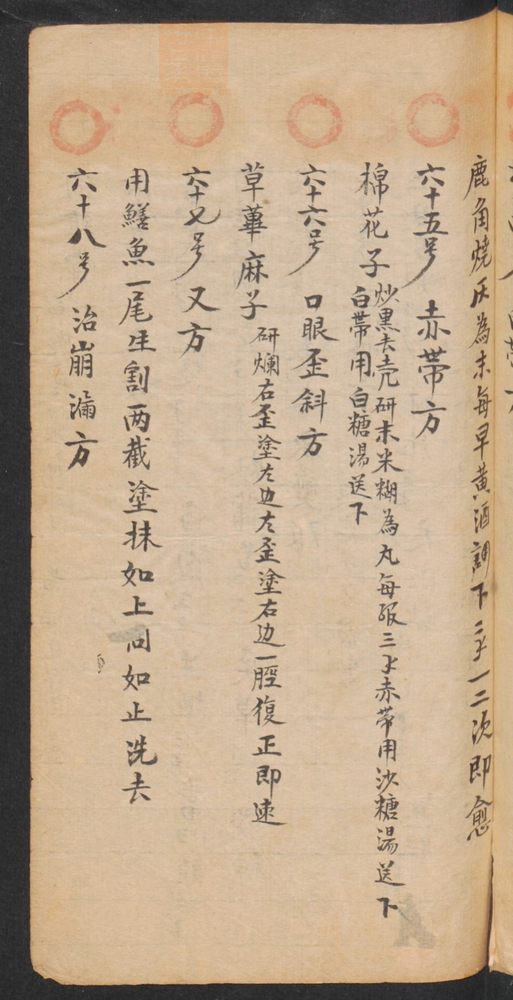 鹿角燒灰為末每早黃酒調下三ソ一二次即愈
六十五号 赤帶方
棉花子炒黑去壳研末米糊為丸每服三ソ赤帶用沙糖湯送下
白帶用白糖湯送下
六十六号 口眼歪斜方
草蓽麻子研爛右歪塗左边左歪塗右边一脛復正即速
六十七号 又方
用鱔魚一尾生割两截塗抹如上同如止洗去
六十八号 治崩漏方